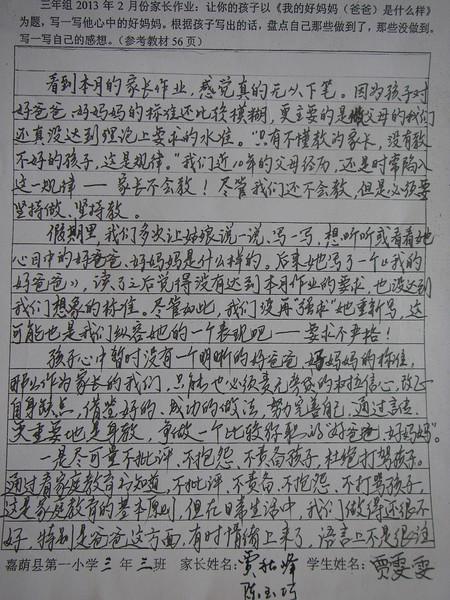 三年组 2013 年 2 月份家长作业：让你的孩子以《我的好妈妈（爸爸）是什么样》
为题，写一写他心中的好妈妈。根据孩子写出的话，盘点自己那些做到了，那些没做到。
写一写自己的感想。（参考教材 56 页）
看到本月的家长作业，感觉真的无从下笔。因为孩子对
好爸爸、好妈妈的标准还比较模糊，更主要的是做父母的我们
还真没达到理论上要求的水准。“只有不懂教的家长，没有教
不好的孩子，这是规律。”我们近10年的父母经历，还是时常陷入
这一规律——家长不会教！尽管我们还不会教，但是必须要
坚持做、坚持教。
假期里，我们多次让姑娘说一说、写一写，想听听或看看她
心目中的好爸爸、好妈妈是什么样的。后来她写了一个《我的
好爸爸》，读了之后觉得没有达到本月作业的要求，也没达到
我们想象的标准。尽管如此，我们没再“强求”她重新写，这
可能也是我们纵容她的一个表现吧——要求不严格！
孩子心中暂时没有一个明晰的好爸爸、好妈妈的标准，
那么作为家长的我们，只能也必须树立信心，改正
自身缺点，借鉴好的、成功的做法，努力完善自己，通过言传、
更重要地是身教，争做一个比较称职的“好爸爸、好妈妈”。
一是尽可量不批评、不抱怨、不责备孩子，杜绝打骂孩子。
通过看家庭教育书知道，不批评、不责备、不抱怨、不打骂孩子，
这是家庭教育的基本原则，但在日常生活中，我们做得还很不
好，特别是爸爸这方面，有时情绪上来了，语言上不是很注
嘉荫县第一小学三年三班 家长姓名：贾秋峰 学生姓名：贾雯雯
陈玉巧